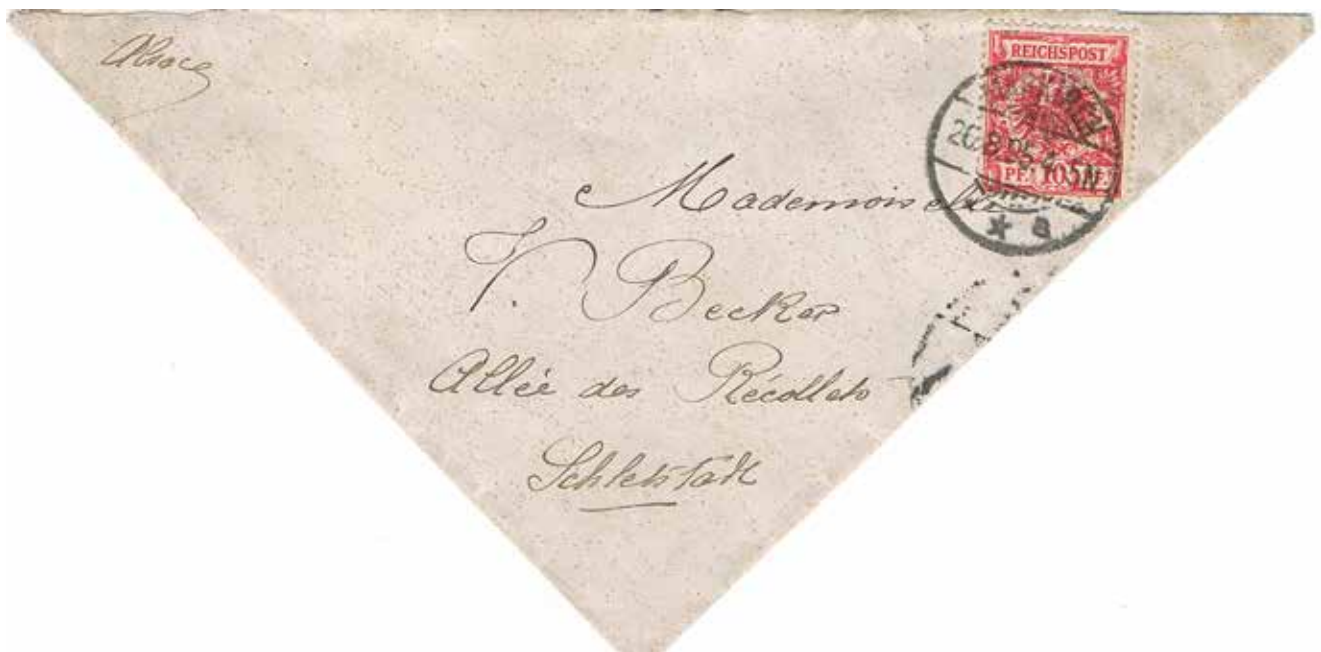 Alsace
REICHSPOST
PF. 10 PF.
4-5N
* a
Mademoiselle
Becker
Allée des Récollets
Schletstadt